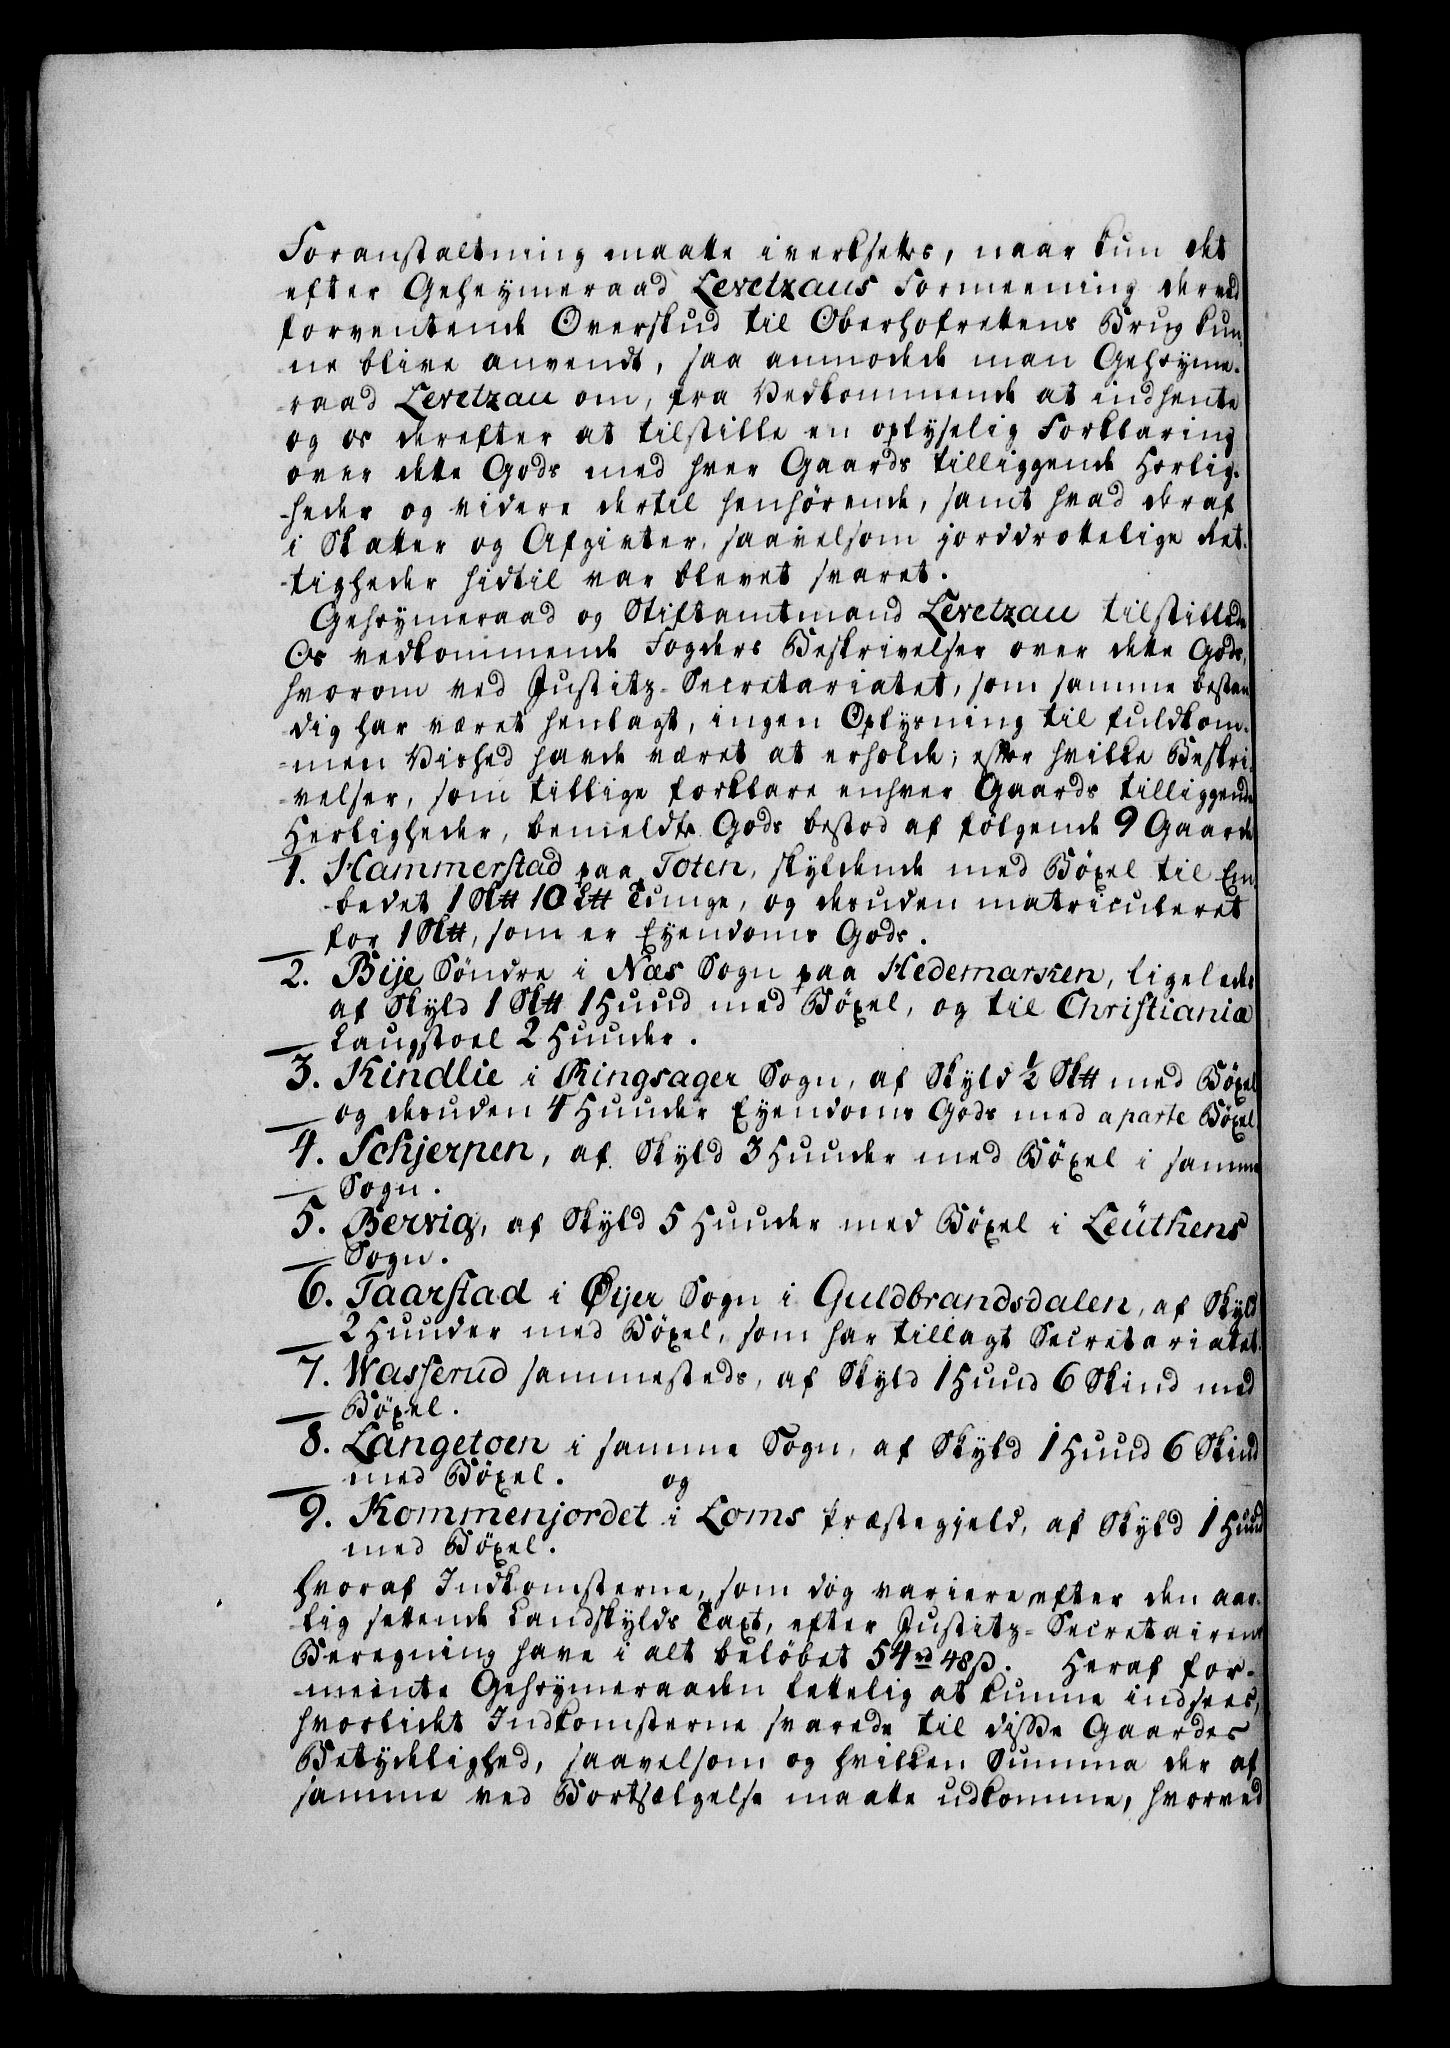 Foranstaltning maatte iverksettes, naar kun det
efter Geheymeraad Levetzaus Formeening derved
forventende Overskud til Oberhofrettens Brug kun-
ne blive anvendt, saa anmodede man Geheyme-
raad Levetzau om, fra Vedkommende at indhente
og os derefter at tilstille en oplyselig Forklaring
over dette Gods med hver Gaards tilliggende Herlig-
heder og videre dertil henhørende, samt hvad deraf
i Skatter og Afgivter, saavelsom jorddrottelige Ret-
tigheder hidtil var blevet svaret.
Geheymeraad og Stiftamtmand Levetzau tilstillede
Os vedkommende Fogders Beskrivelser over dette Gods,
hvorom ved Justitz-Secretariatet, som samme bestan-
dig har været henlagt, ingen Oplysning til fuldkom-
men Vished havde været at erholde; efter hvilke Beskri-
velser, som tillige forklare enhver Gaards tilliggende
Herligheder, bemeldte Gods bestod af følgende 9 Gaarde
1. Hammerstad paa Toten, skyldende med Böxel til Em-
bedet 1 S℔ 10 L℔ Tunge, og desuden matriculeret
for 1 S℔, som er Eyendoms Gods.
2. Bije Söndre i Næs Sogn paa Hedemarken, ligeledes
af Skyld 1 S℔ 1 Huud med Böxel, og til Christianiæ
Laugstoel 2 Huuder.
3. Kindlie i Ringsager Sogn, af Skyld ½ S℔ med Böxel
og desuden 4 Huuder Eyendoms Gods med aparte Böxel.
4. Schjerpen, af Skyld 3 Huuder med Böxel i samme
Sogn.
5. Bervig, af Skyld 5 Huuder med Böxel i Leüthens
Sogn.
6. Taarstad i Øijer Sogn i Guldbrandsdalen, af Skyld
2 Huuder med Böxel, som har tillagt Secretariatet.
7. Wasserud sammesteds, af Skyld 1 Huud 6 Skind med
Böxel.
8. Långetoen i samme Sogn, af Skyld 1 Huud 6 Skind
med Böxel. og
9. Kommenjordet i Loms Præstegjeld, af Skyld 1 Huud
med Böxel.
hvoraf Indkomsterne, som dog variere efter den aar-
lig settende Landskylds Taxt, efter Justitz-Secretairens
Beregning have i alt beløbet 54 rd 48 ß. Heraf for-
meente Geheymeraaden lettelig at kunne indsees,
hvorlidet Indkomsterne svarede til disse Gaardes
Betydelighed, saavelsom og hvilken Summa der af
samme ved Bortsælgelse maatte udkomme, hvorved